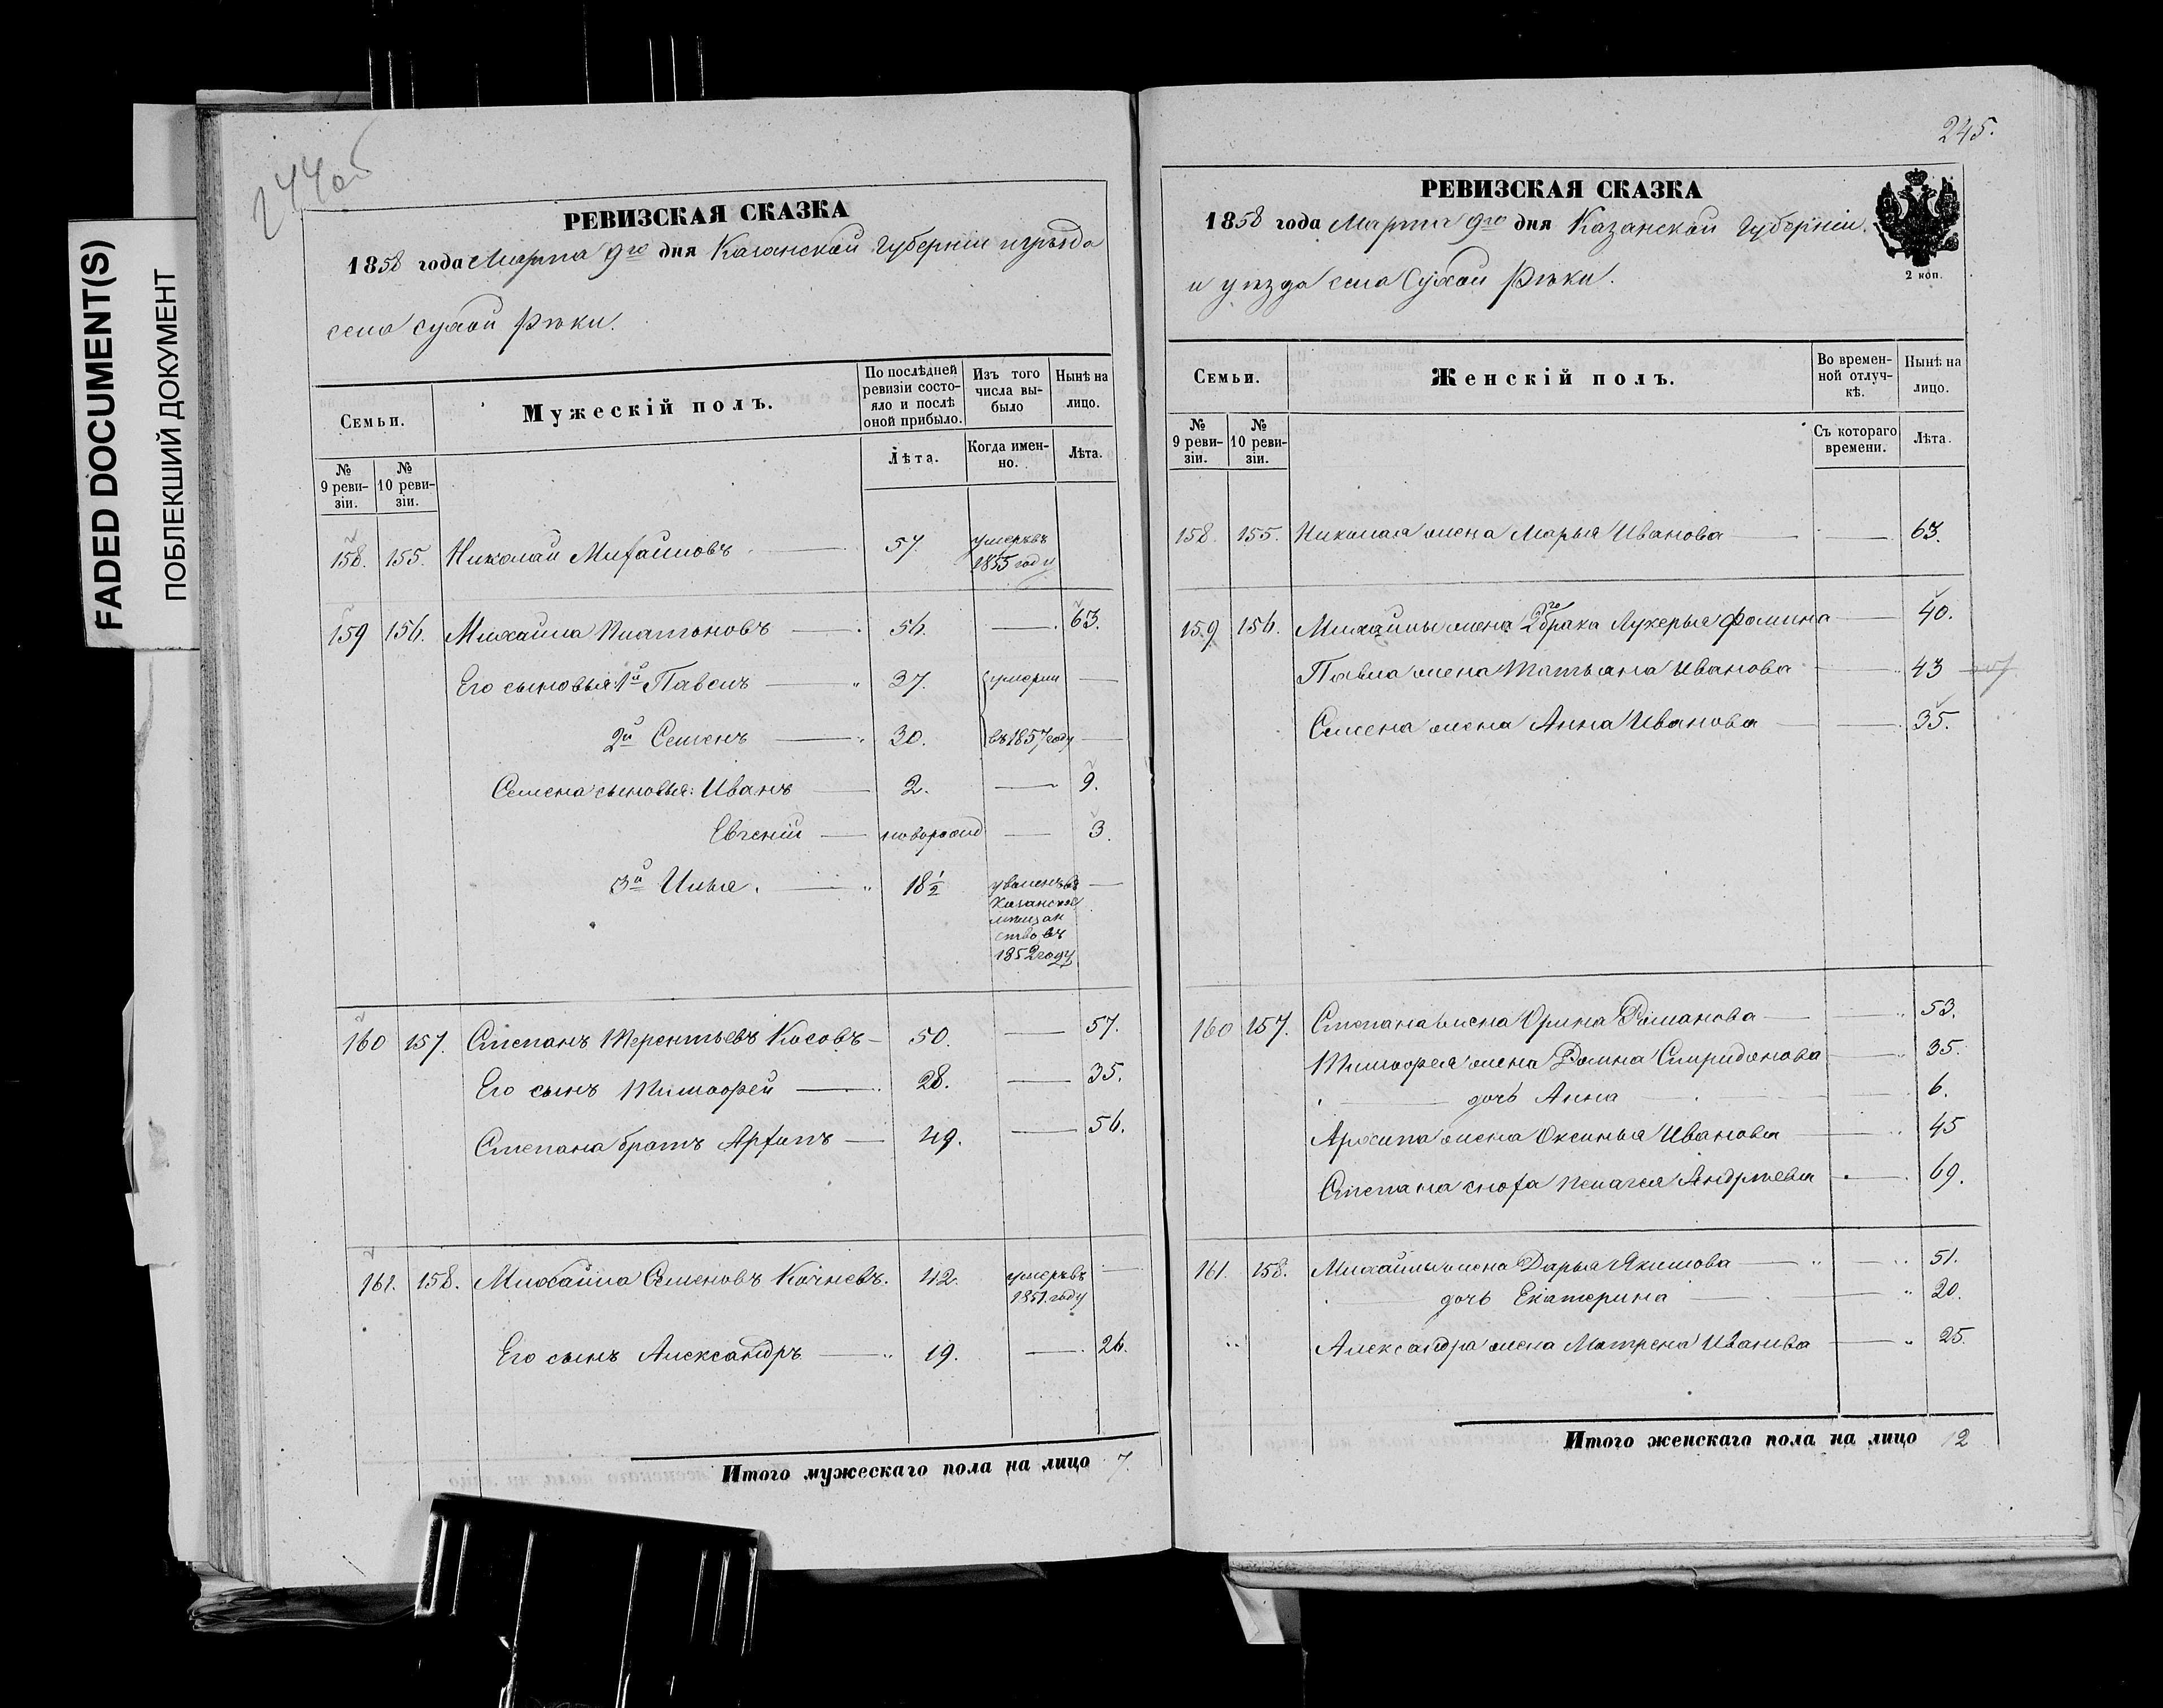 FADED DOCUMENT(S)
ПОБЛЕКШИЙ ДОКУМЕНТ
244об
РЕВИЗСКАЯ СКАЗКА
1858 года Марта 9го дня Казанской Губерніи и уѣзда
села Сухой Рѣки.
Семьи.
Мужескій полъ.
По послѣдней ревизіи состояло и послѣ оной прибыло.
Изъ того числа выбыло
Нынѣ на лицо.
№ 9 ревизіи.
№ 10 ревизіи.
Лѣта.
Когда именно.
Лѣта.
158. 155. Николай Михайловъ 57. умеръ въ 1855 году
159 156. Михайла Платоновъ 56. 63.
Его сыновья: 1й Павелъ 37. умерли
2й Семенъ 30. въ 1857 году
Семена сыновья: Иванъ 2. 9.
Евгеній новорожд 3.
3й Илья. 18½ уволенъ въ Казанское мѣщанство въ 1852 году
160 157. Степанъ Терентьевъ Косовъ 50. 57.
Его сынъ Тимофей 28. 35.
Степана братъ Архипъ 49. 56.
161. 158. Михайла Семеновъ Кочневъ. 42. умеръ въ 1851. году
Его сынъ Александръ 19. 26.
Итого мужескаго пола на лицо 7.
245.
РЕВИЗСКАЯ СКАЗКА
1858 года Марта 9го дня Казанской Губерніи.
и уѣзда села Сухой Рѣки.
2 коп.
Семьи.
Женскій полъ.
Во временной отлучкѣ.
Нынѣ на лицо.
№ 9 ревизіи.
№ 10 ревизіи.
Съ котораго времени.
Лѣта.
158. 155. Николая жена Марья Иванова 63.
159 156. Михайлы жена 2го брака Лукерья Фомина 40.
Павла жена Татьяна Иванова 43
Семена жена Анна Иванова 35.
160 157. Степана жена Орина Романова 53.
Тимофея жена Домна Спиридонова 35.
дочь Анна 6.
Архипа жена Оксинья Иванова 45
Степана сноха Пелагея Андреева 69.
161. 158. Михайлы жена Дарья Якимова 51.
дочь Екатерина 20.
Александра жена Матрена Иванова 25.
Итого женскаго пола на лицо 12